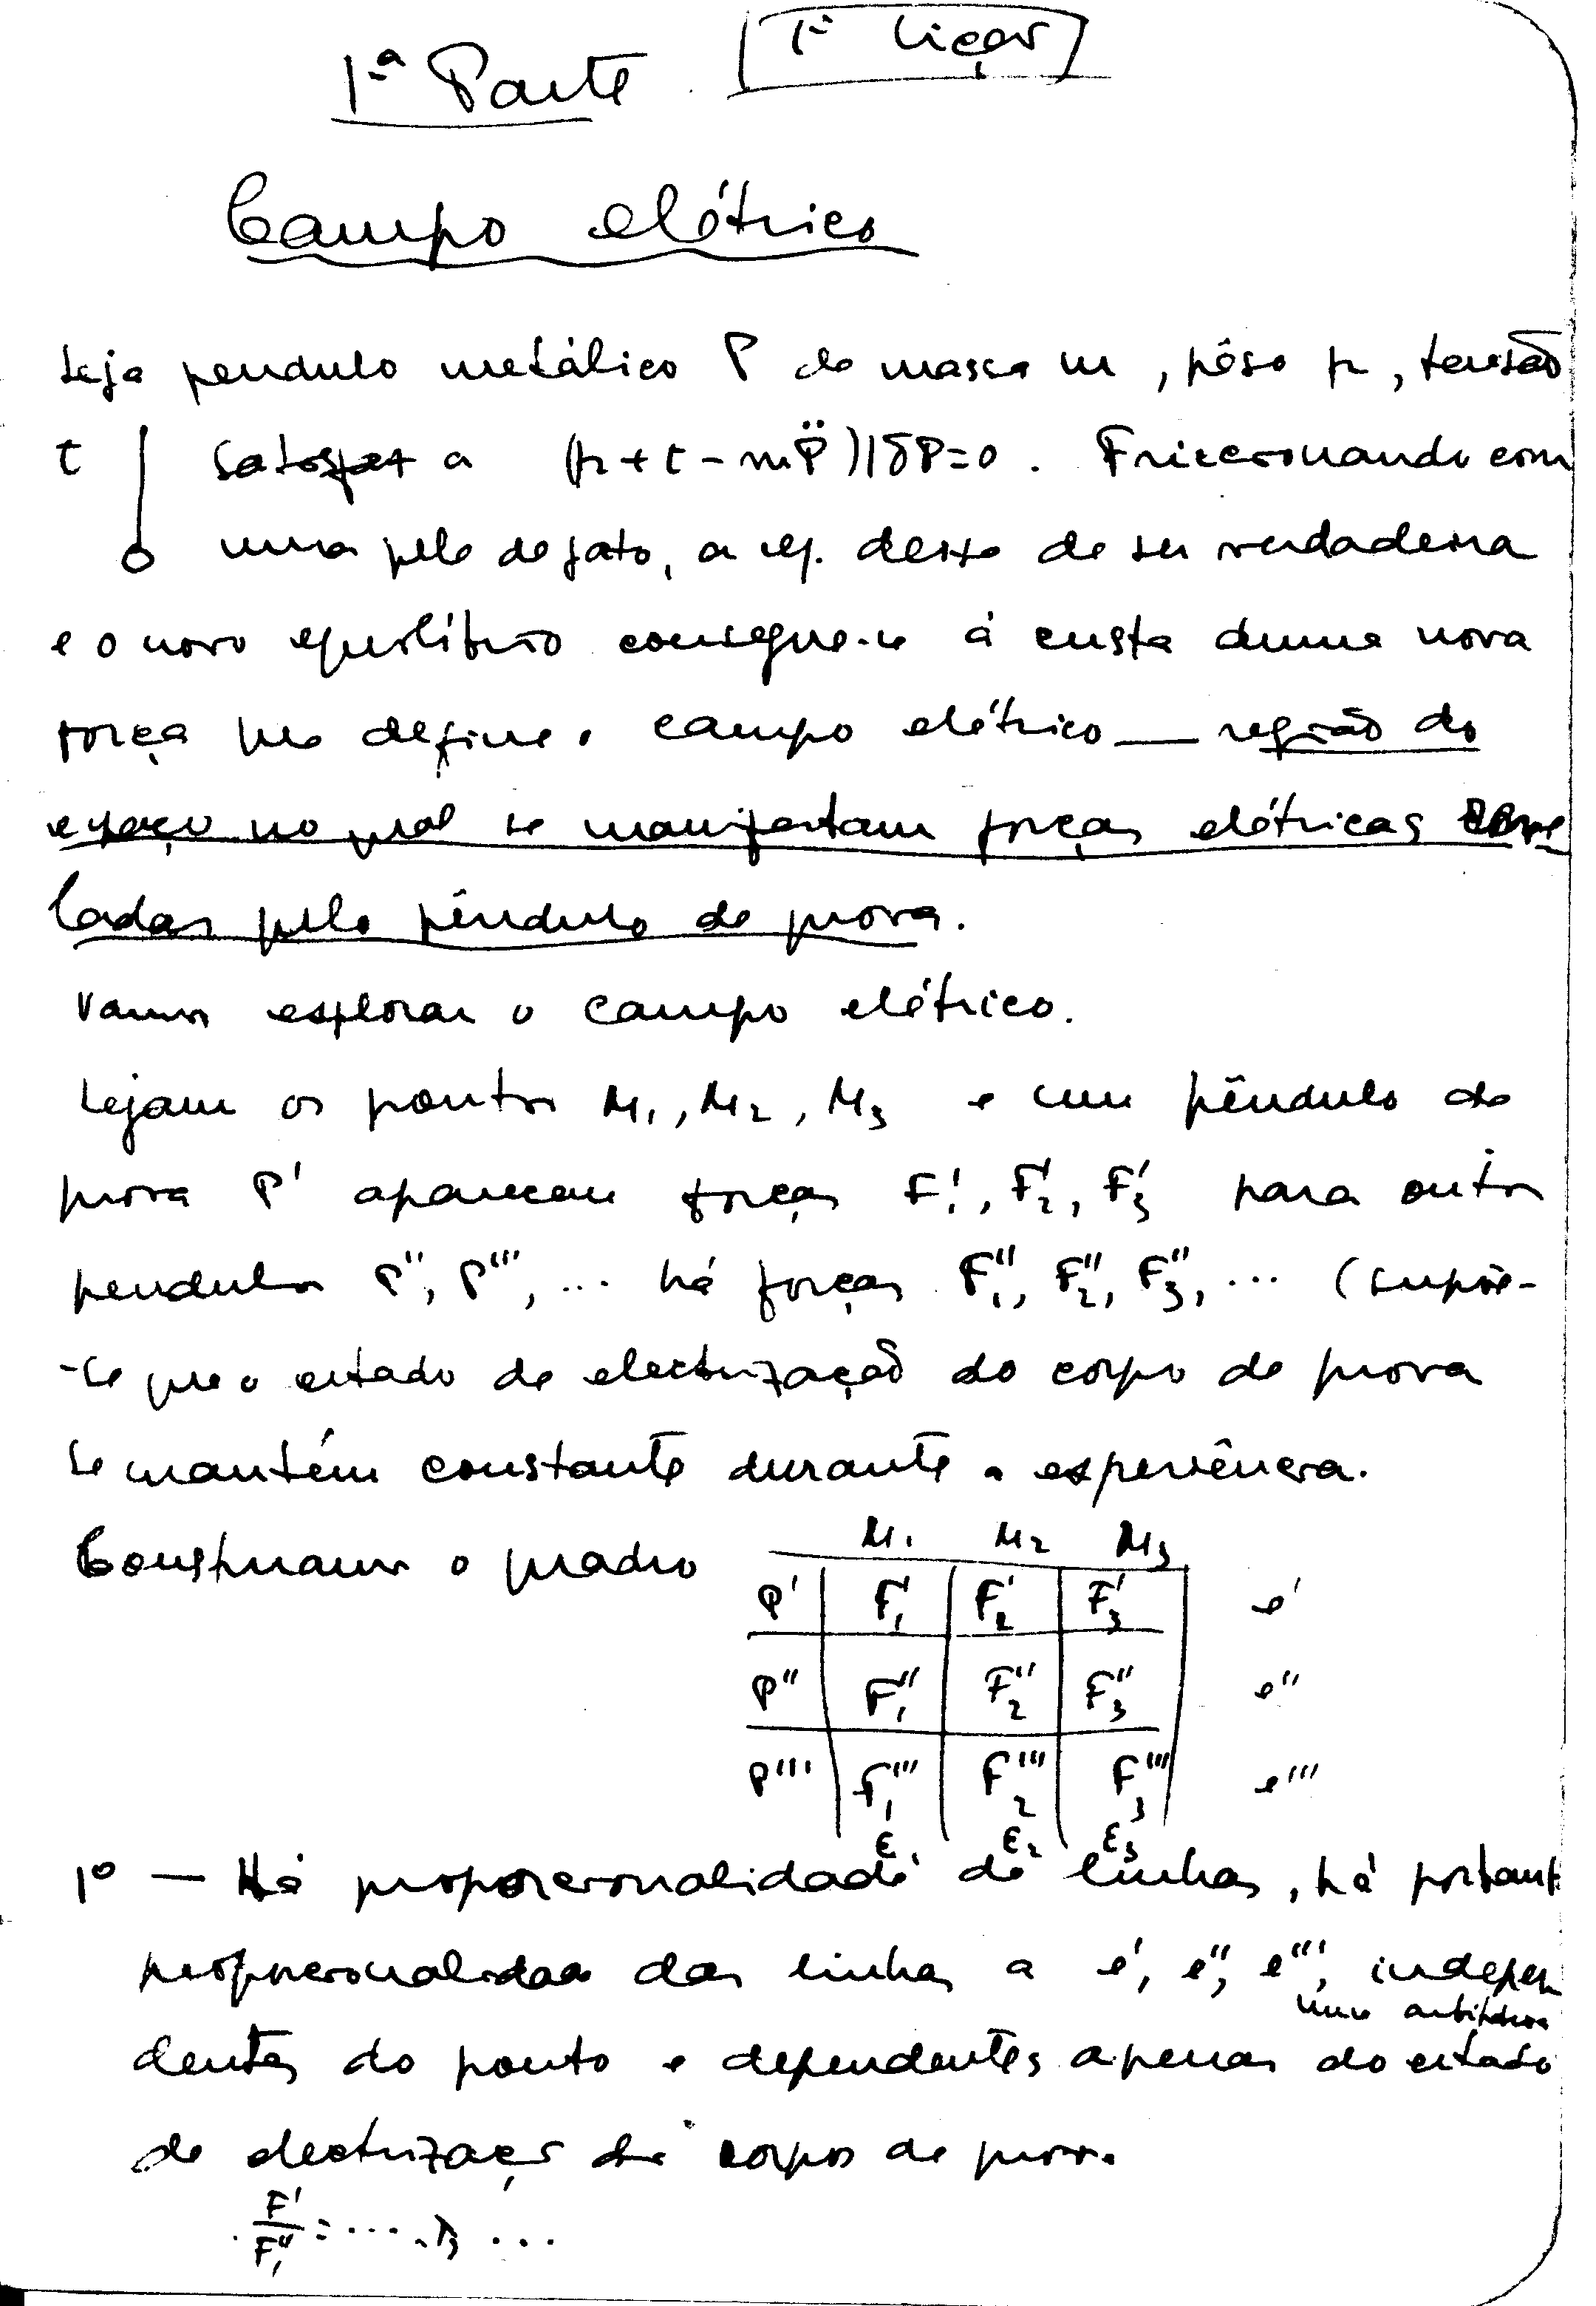 1ª Parte [1ª Lição]
Campo elétrico
Seja pendulo metálico P de massa m, pêso p, tensão
t satisfaz a (p + t - mP̈)|δP=0. Friccionando com
uma pele de gato, a eq. deixa de ser verdadeira
e o novo equilíbrio consegue-se à custa duma nova
força que define o campo elétrico — região do
espaço no qual se manifestam forças elétricas reve
ladas pelo pêndulo de prova.
Vamos explorar o campo elétrico.
Sejam os pontos M₁, M₂, M₃ e um pêndulo de
prova P' aparecem forças F'₁, F'₂, F'₃ para outros
pendulos P'', P''', ... há forças F''₁, F''₂, F''₃, ... (supõe-
-se que o estado de electrização do corpo de prova
se mantém constante durante a experiência.
Construamos o quadro
M₁ M₂ M₃
P' F'₁ F'₂ F'₃ e'
P'' F''₁ F''₂ F''₃ e''
P''' F'''₁ F'''₂ F'''₃ e'''
ε₁ ε₂ ε₃
1º — Há proporcionalidade de linhas, há portant
proporcionalidade das linhas a e', e'', e''', indepen
dentes do ponto e dependentes apenas do estado
de electrização do corpo de prova
F'/F''₁ = ...